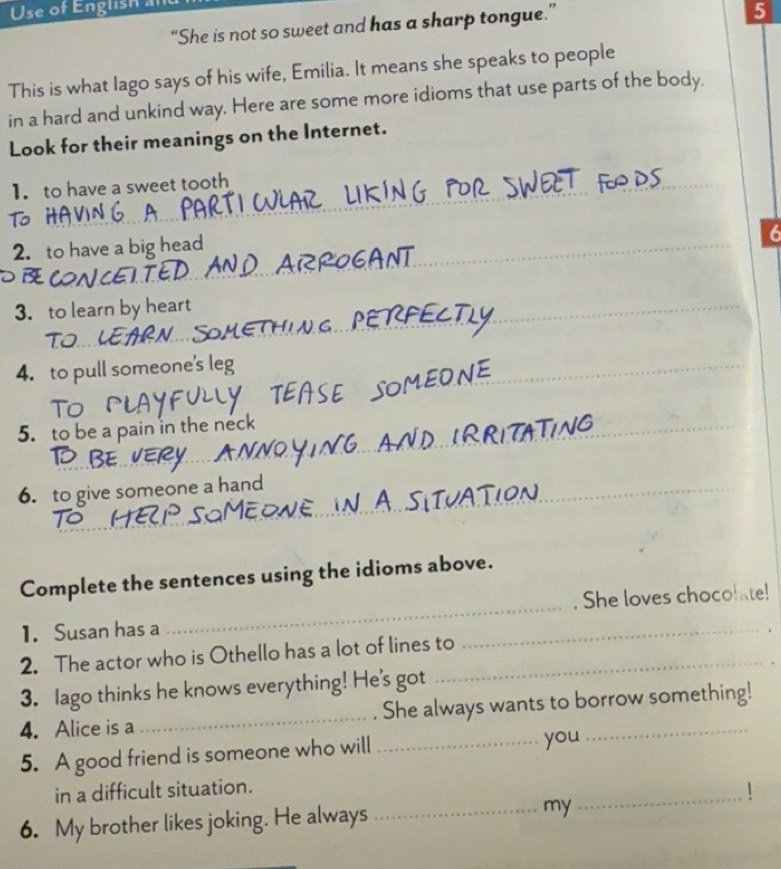 Use of English
5
"She is not so sweet and has a sharp tongue."
This is what Iago says of his wife, Emilia. It means she speaks to people
in a hard and unkind way. Here are some more idioms that use parts of the body.
Look for their meanings on the Internet.
1. to have a sweet tooth
TO HAVING A PARTICULAR LIKING FOR SWEET FOODS
6
2. to have a big head
O BE CONCEITED AND ARROGANT
3. to learn by heart
TO LEARN SOMETHING PERFECTLY
4. to pull someone's leg
TO PLAYFULLY TEASE SOMEONE
5. to be a pain in the neck
TO BE VERY ANNOYING AND IRRITATING
6. to give someone a hand
TO HELP SOMEONE IN A SITUATION
Complete the sentences using the idioms above.
1. Susan has a ............ . She loves chocolate!
2. The actor who is Othello has a lot of lines to ............ .
3. Iago thinks he knows everything! He's got ............ .
4. Alice is a ............ . She always wants to borrow something!
5. A good friend is someone who will ............ you ............
in a difficult situation.
6. My brother likes joking. He always ............ my ............ !